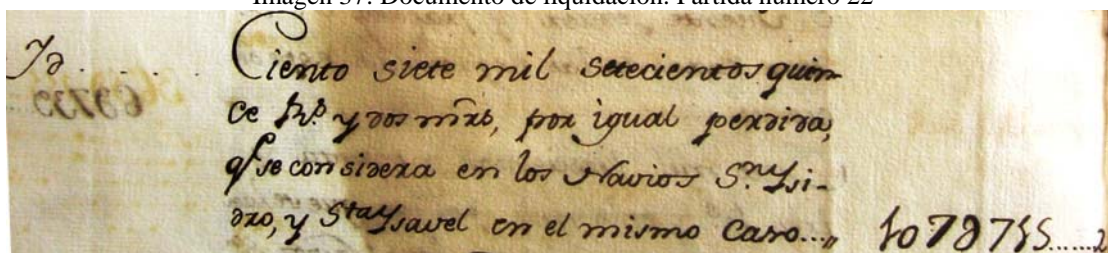 Imagen 37. Documento de liquidación. Partida número 22
Yd..... Ciento siete mil Setecientos quin-
ce Rs. y dos mrs, por igual perdida,
q se considera en los Navios Sn. Ysi-
dro, y Sta Ysavel en el mismo Caso...,, 107@715......2